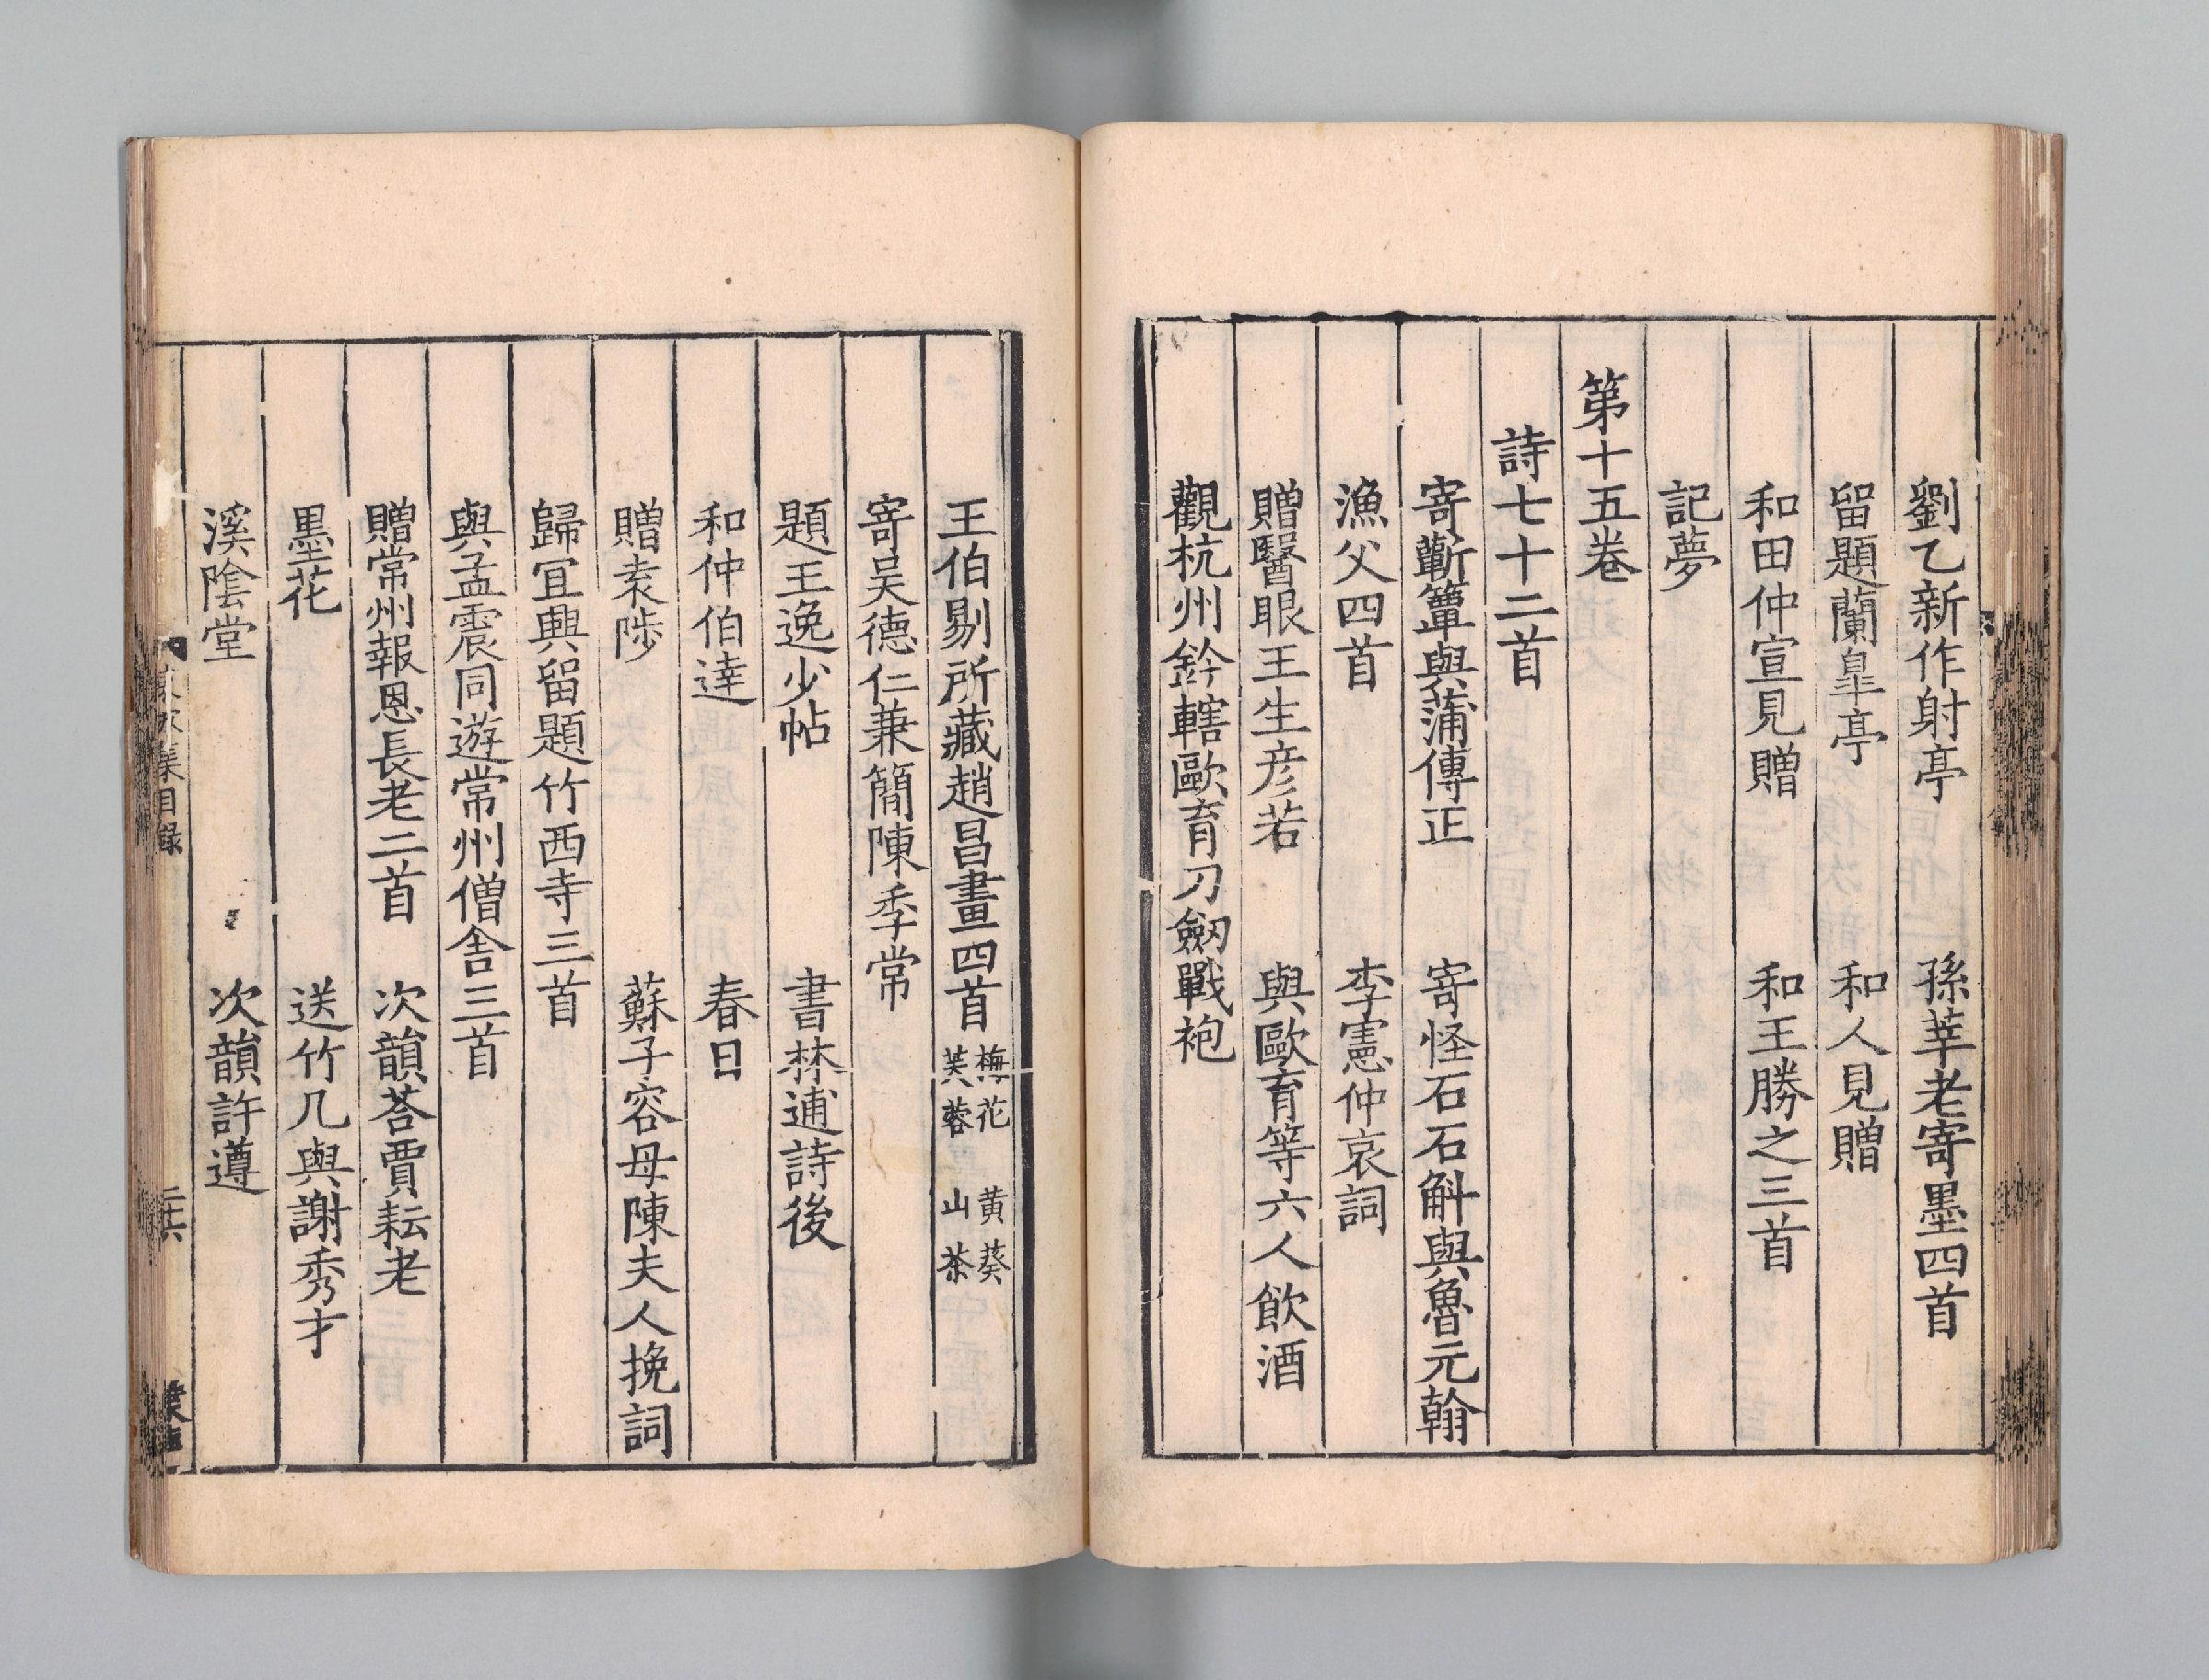 劉乙新作射亭　孫莘老寄墨四首
留題蘭皐亭　和人見贈
和田仲宣見贈　和王勝之三首
記夢
第十五卷
詩七十二首
寄蘄簟與蒲傳正　寄怪石石斛與魯元翰
漁父四首　李憲仲哀詞
贈醫眼王生彦若　與歐育等六人飲酒
觀杭州鈐轄歐育刀劒戰袍
王伯敭所藏趙昌畫四首　梅花　黄葵　芙蓉　山茶
寄吴德仁兼簡陳季常
題王逸少帖　書林逋詩後
和仲伯達　春日
贈袁陟　蘇子容母陳夫人挽詞
歸宜興留題竹西寺三首
與孟震同遊常州僧舍三首
贈常州報恩長老二首　次韻荅賈耘老
墨花　送竹几與謝秀才
溪陰堂　次韻許遵
集目録